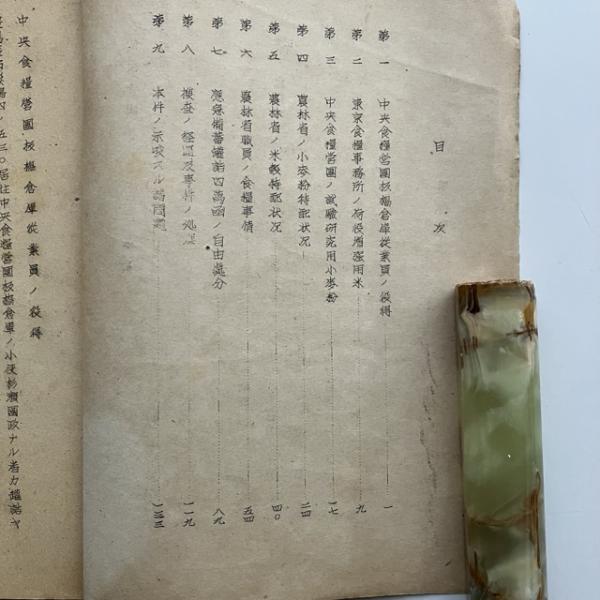 目次
第一 中央食糧營團板橋倉庫從業員ノ役得 一
第二 東京食糧事務所ノ荷役用强用米 九
第三 中央食糧營團ノ試驗研究用小麥粉 一七
第四 農林省ノ小麥粉特配狀況 二四
第五 農林省ノ米穀特配狀況 四〇
第六 農林省職員ノ食糧事情 五四
第七 應急備蓄罐詰四萬函ノ自由處分 八九
第八 搜査ノ經過及事件ノ處理 一一九
第九 本件ノ示唆スル諸問題 一三三
中央食糧營團板橋倉庫從業員ノ役得
四ノ五三〇居住中央食糧營團板橋倉庫ノ小使杉瀨國政ナル者カ罐詰ヤ